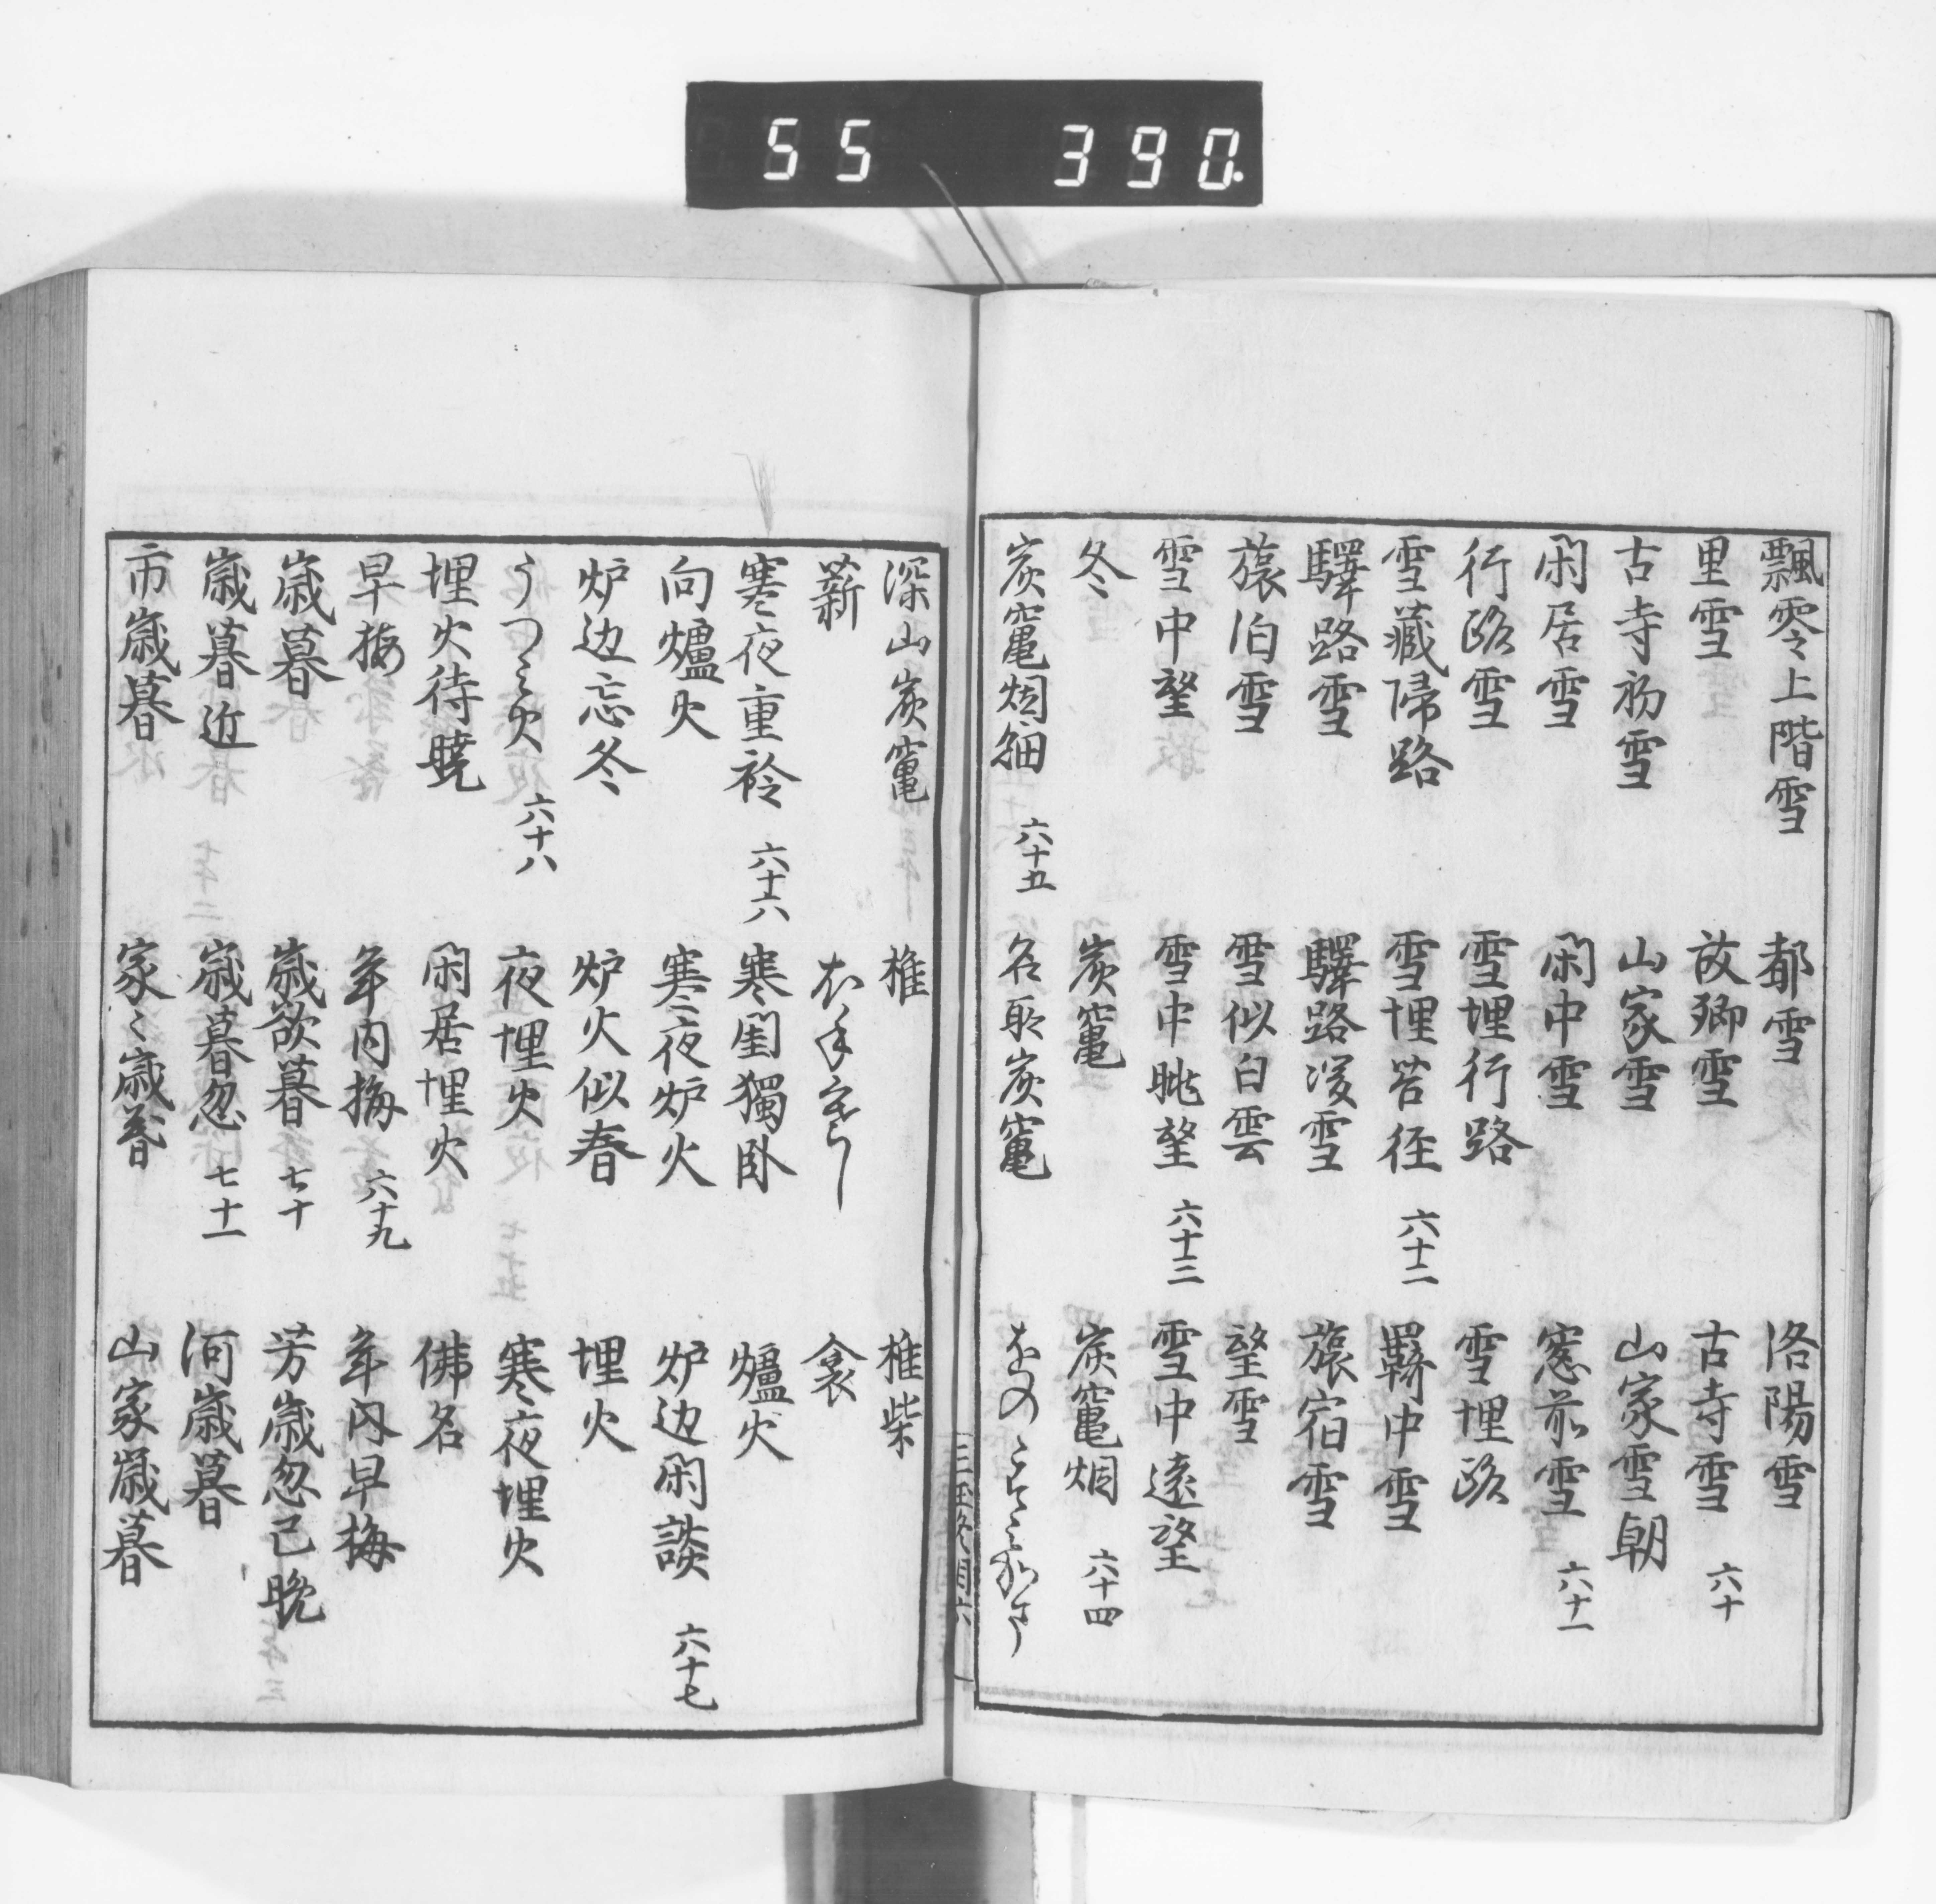 55 390.
飄零上階雪 都雪 洛陽雪
里雪 故郷雪 古寺雪 六十
古寺初雪 山家雪 山家雪朝
閑居雪 閑中雪 窓前雪 六十一
行路雪 雪埋行路 雪埋路
雪蔵帰路 雪埋苔径 六十二 羇中雪
驛路雪 驛路深雪 旅宿雪
旅泊雪 雪似白雲 望雪
雪中望 雪中眺望 六十三 雪中遠望
冬 炭竃 炭竃烟 六十四
炭竃烟細 六十五 名所炭竃
深山炭竃 椎 椎柴
薪 衾
寒夜重衿 六十六 寒閨獨臥 爐火
向爐火 寒夜炉火 炉边閑談 六十七
炉边忘冬 炉火似春 埋火
うつミ火 六十八 夜埋火 寒夜埋火
埋火待暁 閑居埋火 佛名
早梅 年内梅 六十九 年内早梅
歳暮 歳欲暮 七十 芳歳忽已晩
歳暮近 歳暮忽 七十一 河歳暮
市歳暮 家〻歳暮 山家歳暮